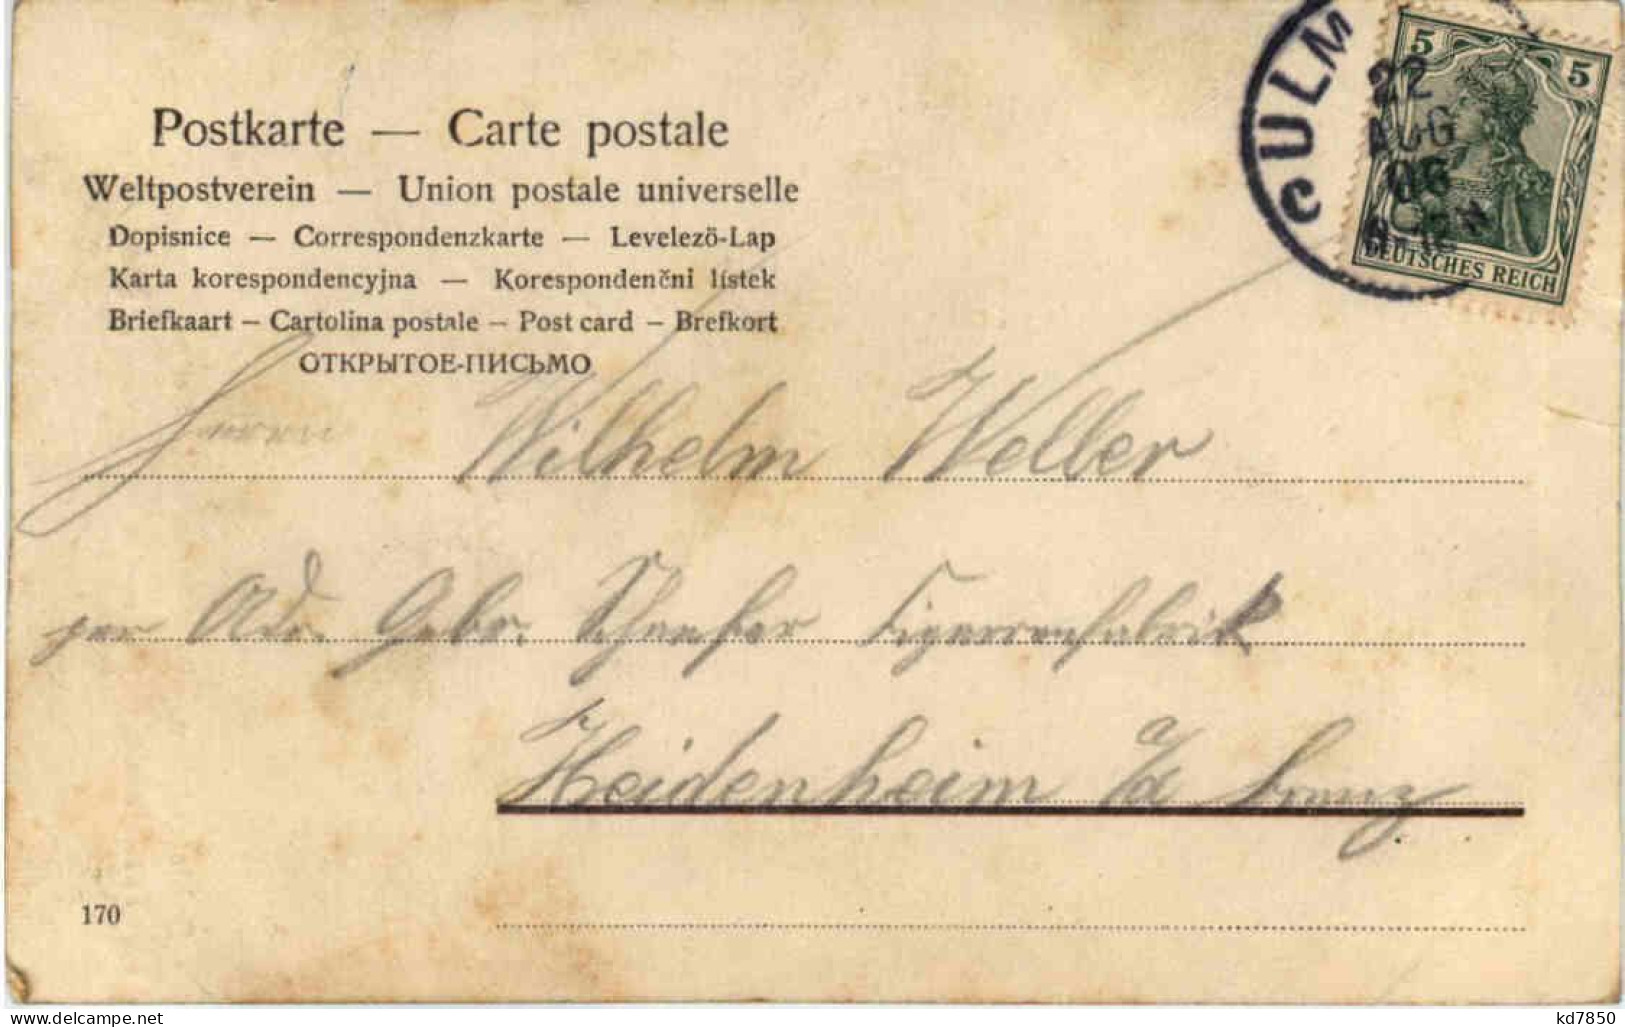 Postkarte — Carte postale
Weltpostverein — Union postale universelle
Dopisnice — Correspondenzkarte — Levelező-Lap
Karta korespondencyjna — Korespondenčni lístek
Briefkaart — Cartolina postale — Post card — Brefkort
ОТКРЫТОЕ-ПИСЬМО
CULM
22
AUG
06
5 5
DEUTSCHES REICH
Herrn Wilhelm Weller
per Adr. Gebr. Schaefer Zigarrenfabrik
Heidenheim a/d Brenz
170
kd7850